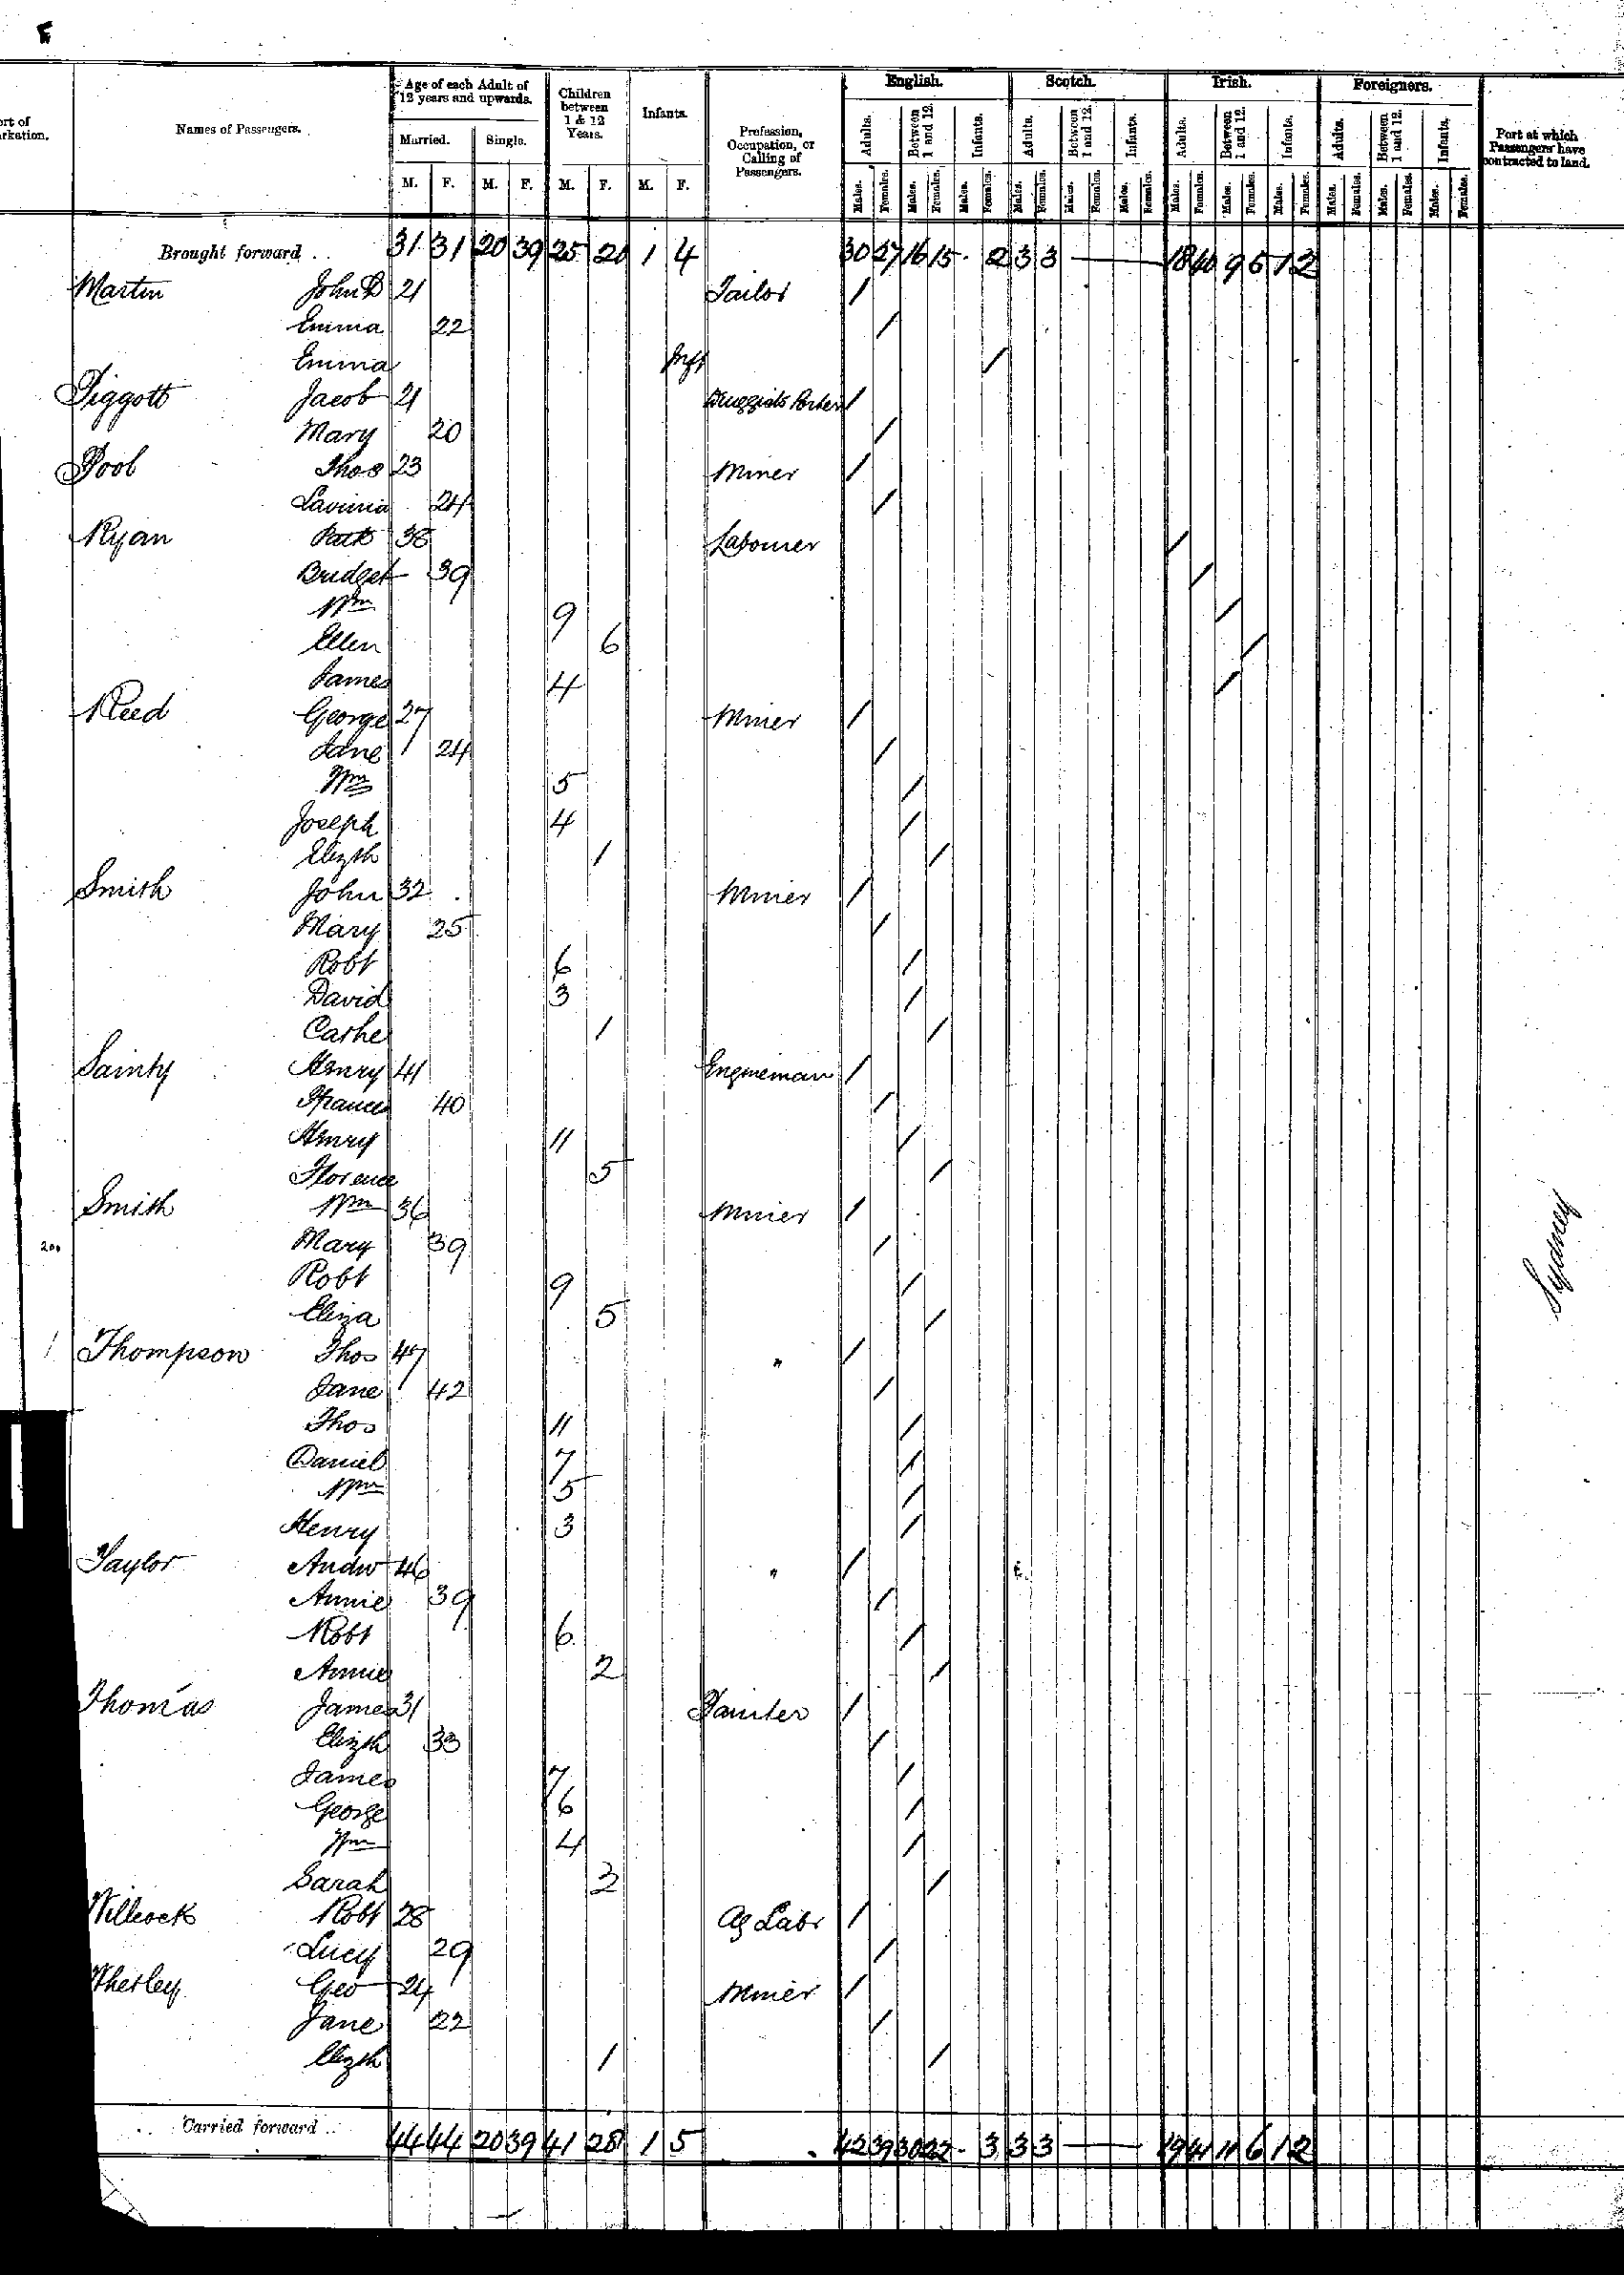 E
ort of
arkation.
Names of Passengers.
Age of each Adult of
12 years and upwards.
Married. Single.
M. F. M. F.
Children
between
1 & 12
Years.
M. F.
Infants.
M. F.
Profession,
Occupation, or
Calling of
Passengers.
English. Scotch. Irish. Foreigners.
Adults. Between 1 and 12. Infants. Adults. Between 1 and 12. Infants. Adults. Between 1 and 12. Infants. Adults. Between 1 and 12. Infants.
Males. Females. Males. Females. Males. Females. Males. Females. Males. Females. Males. Females. Males. Females. Males. Females. Males. Females. Males. Females. Males. Females. Males. Females.
Port at which
Passengers have
contracted to land.
Brought forward .. 31 31 20 39 25 20 1 4 30 27 16 15 . 2 3 3 — 18 40 9 5 1 2
Martin John D 21 Tailor /
Emma 22 /
Emma Inft /
Piggott Jacob 21 Druggists Porter /
Mary 20 /
Pool Thos 23 Miner /
Lavinia 24 /
Ryan Patk 38 Labourer /
Bridget 39 /
Wm 9 /
Ellen 6 /
James 4 /
Reed George 27 Miner /
Jane 24 /
Wm 5 /
Joseph 4 /
Elizth 1 /
Smith John 32 Miner /
Mary 25 /
Robt 6 /
David 3 /
Cathe 1 /
Sainty Henry 41 Engineman /
Frances 40 /
Henry 11 /
Florence 5 /
Smith Wm 36 Miner /
200 Mary 39 /
Robt 9 /
Eliza 5 /
Sydney
1 Thompson Thos 47 " /
Jane 42 /
Thos 11 /
Daniel 7 /
Wm 5 /
Henry 3 /
Taylor Andw 46 " /
Annie 39 /
Robt 6 /
Annie 2 /
Thomas James 31 Painter /
Elizth 33 /
James 7 /
George 6 /
Wm 4 /
Sarah 2 /
Willcock Robt 28 Ag Labr /
Lucy 29 /
Wherley Geo 24 Miner /
Jane 22 /
Elizth 1 /
Carried forward .. 44 44 20 39 41 28 1 5 42 39 30 22 - 3 3 3 — 19 41 11 6 1 2